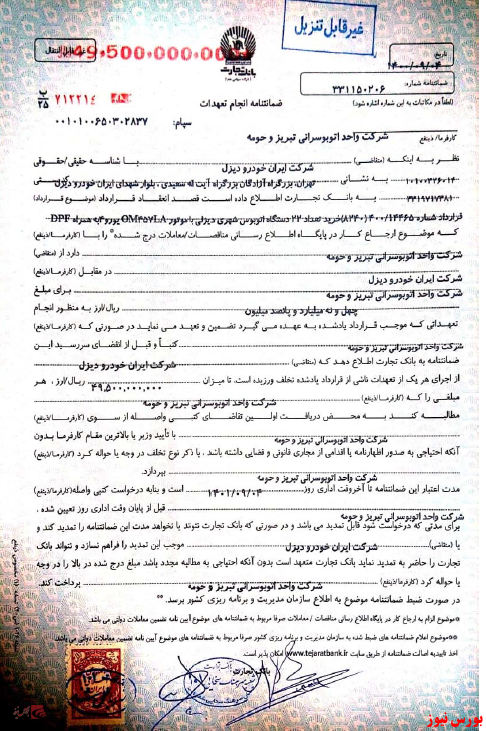 غیرقابل تنزیل
49,500,000,000
غیر قابل انتقال
بانک تجارت
تاریخ
۱۴۰۰/۰۹/۰۴
ضمانتنامه شماره:
۳۳۱۱۵۰۲۰۶
(لطفاً در مکاتبات به این شماره اشاره شود)
ضمانتنامه انجام تعهدات
ب/۲۵ ۷۱۲۲۱۴
سپام: ۰۰۱۰۱۰۰۶۵۰۳۰۲۸۳۷
کارفرما/ذینفع شرکت واحد اتوبوسرانی تبریز و حومه
نظر به اینکه (متقاضی) شرکت ایران خودرو دیزل با شناسه حقیقی/حقوقی
به نشانی تهران، بزرگراه آزادگان بزرگراه آیت اله سعیدی، بلوار شهدای ایران خودرو دیزل
به بانک تجارت اطلاع داده است قصد انعقاد قرارداد (موضوع قرارداد)
خرید تعداد ۲۲ دستگاه اتوبوس شهری دیزلی با موتور OM457LA یورو۴ به همراه DPF
که موضوع ارجاع کار در پایگاه اطلاع رسانی مناقصات/معاملات درج شده* را با (کارفرما/ذینفع)
شرکت واحد اتوبوسرانی تبریز و حومه دارد از (متقاضی)
شرکت ایران خودرو دیزل در مقابل (کارفرما/ذینفع)
شرکت واحد اتوبوسرانی تبریز و حومه برای مبلغ
چهل و نه میلیارد و پانصد میلیون ریال/ارز به منظور انجام
تعهداتی که بموجب قرارداد یادشده به عهده می گیرد تضمین و تعهد می نماید در صورتی که (کارفرما/ذینفع)
شرکت واحد اتوبوسرانی تبریز و حومه کتباً و قبل از انقضای سررسید این
ضمانتنامه به بانک تجارت اطلاع دهد که (متقاضی) شرکت ایران خودرو دیزل
از اجرای هر یک از تعهدات ناشی از قرارداد یادشده تخلف ورزیده است، تا میزان ۴۹,۵۰۰,۰۰۰,۰۰۰ ریال/ارز، هر
مبلغی را که (کارفرما/ذینفع) شرکت واحد اتوبوسرانی تبریز و حومه
مطالبه کنند به محض دریافت اولین تقاضای کتبی واصله از سوی (کارفرما/ذینفع)
شرکت واحد اتوبوسرانی تبریز و حومه با تأیید وزیر یا بالاترین مقام کارفرما بدون
آنکه احتیاجی به صدور اظهارنامه یا اقدامی از مجاری قانونی و قضایی داشته باشد، با ذکر نوع تخلف در وجه یا حواله کرد (کارفرما/ذینفع)
شرکت واحد اتوبوسرانی تبریز و حومه بپردازد.
مدت اعتبار این ضمانتنامه تا آخر وقت اداری روز ۱۴۰۱/۰۹/۰۴ است و بنابه درخواست کتبی واصله (کارفرما/ذینفع)
شرکت واحد اتوبوسرانی تبریز و حومه قبل از پایان وقت اداری روز تعیین شده،
برای مدتی که درخواست شود قابل تمدید می باشد و در صورتی که بانک تجارت نتواند یا نخواهد مدت این ضمانتنامه را تمدید کند و
یا (متقاضی) شرکت ایران خودرو دیزل موجب این تمدید را فراهم نسازد و نتواند بانک
تجارت را حاضر به تمدید نماید بانک تجارت متعهد است بدون آنکه احتیاجی به مطالبه مجدد باشد مبلغ درج شده در بالا را در وجه
یا حواله کرد (کارفرما/ذینفع) شرکت واحد اتوبوسرانی تبریز و حومه پرداخت کند.
در صورت ضبط ضمانتنامه موضوع به اطلاع سازمان مدیریت و برنامه ریزی کشور برسد. **
*موضوع الزام به ارجاع کار در پایگاه اطلاع رسانی مناقصات / معاملات صرفا مربوط به ضمانتنامه های موضوع آیین نامه تضمین معاملات دولتی می باشد.
**موضوع اعلام ضمانتنامه های ضبط شده به سازمان مدیریت و برنامه ریزی کشور صرفا مربوط به ضمانتنامه های موضوع آیین نامه تضمین معاملات دولتی می باشد.
اخذ تاییدیه اصالت ضمانتنامه از طریق سایت www.tejaratbank.ir امکان پذیر است.
بانک تجارت
بورس نیوز